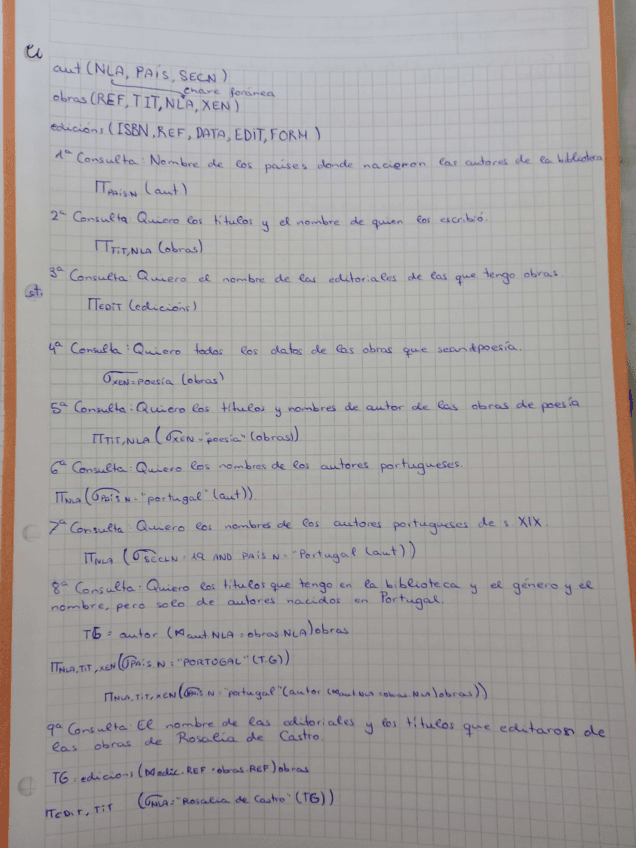 aut (NLA, PAÍS, SECN)
chave foránea
obras (REF, TIT, NLA, XEN)
edicións (ISBN, REF, DATA, EDIT, FORM)
1ª Consulta: Nombre de los países donde nacieron los autores de la biblioteca
π PAIS N (aut)
2ª Consulta: Quiero los títulos y el nombre de quien los escribió.
π TIT, NLA (obras)
3ª Consulta: Quiero el nombre de las editoriales de las que tengo obras.
π EDIT (edicións)
4ª Consulta: Quiero todos los datos de las obras que sean poesía.
σ XEN = poesía (obras)
5ª Consulta: Quiero los títulos y nombres de autor de las obras de poesía
π TIT, NLA (σ XEN = "poesía" (obras))
6ª Consulta: Quiero los nombres de los autores portugueses.
π NLA (σ PAÍS N = "portugal" (aut))
7ª Consulta: Quiero los nombres de los autores portugueses de s. XIX.
π NLA (σ SECLN = 19 AND PAÍS N = "Portugal (aut))
8ª Consulta: Quiero los títulos que tengo en la biblioteca y el género y el
nombre, pero solo de autores nacidos en Portugal.
TG = autor (⋈ aut.NLA = obras.NLA) obras
π NLA, TIT, XEN (σ PAÍS N = "PORTUGAL" (T.G))
π NLA, TIT, XEN (σ PAÍS N = "portugal" (autor (⋈ aut.NLA = obras.NLA) obras))
9ª Consulta: El nombre de las editoriales y los títulos que editaron de
las obras de Rosalía de Castro.
TG = edicions (⋈ edic.REF = obras.REF) obras
π EDIT, TIT (σ NLA = "Rosalía de Castro" (TG))